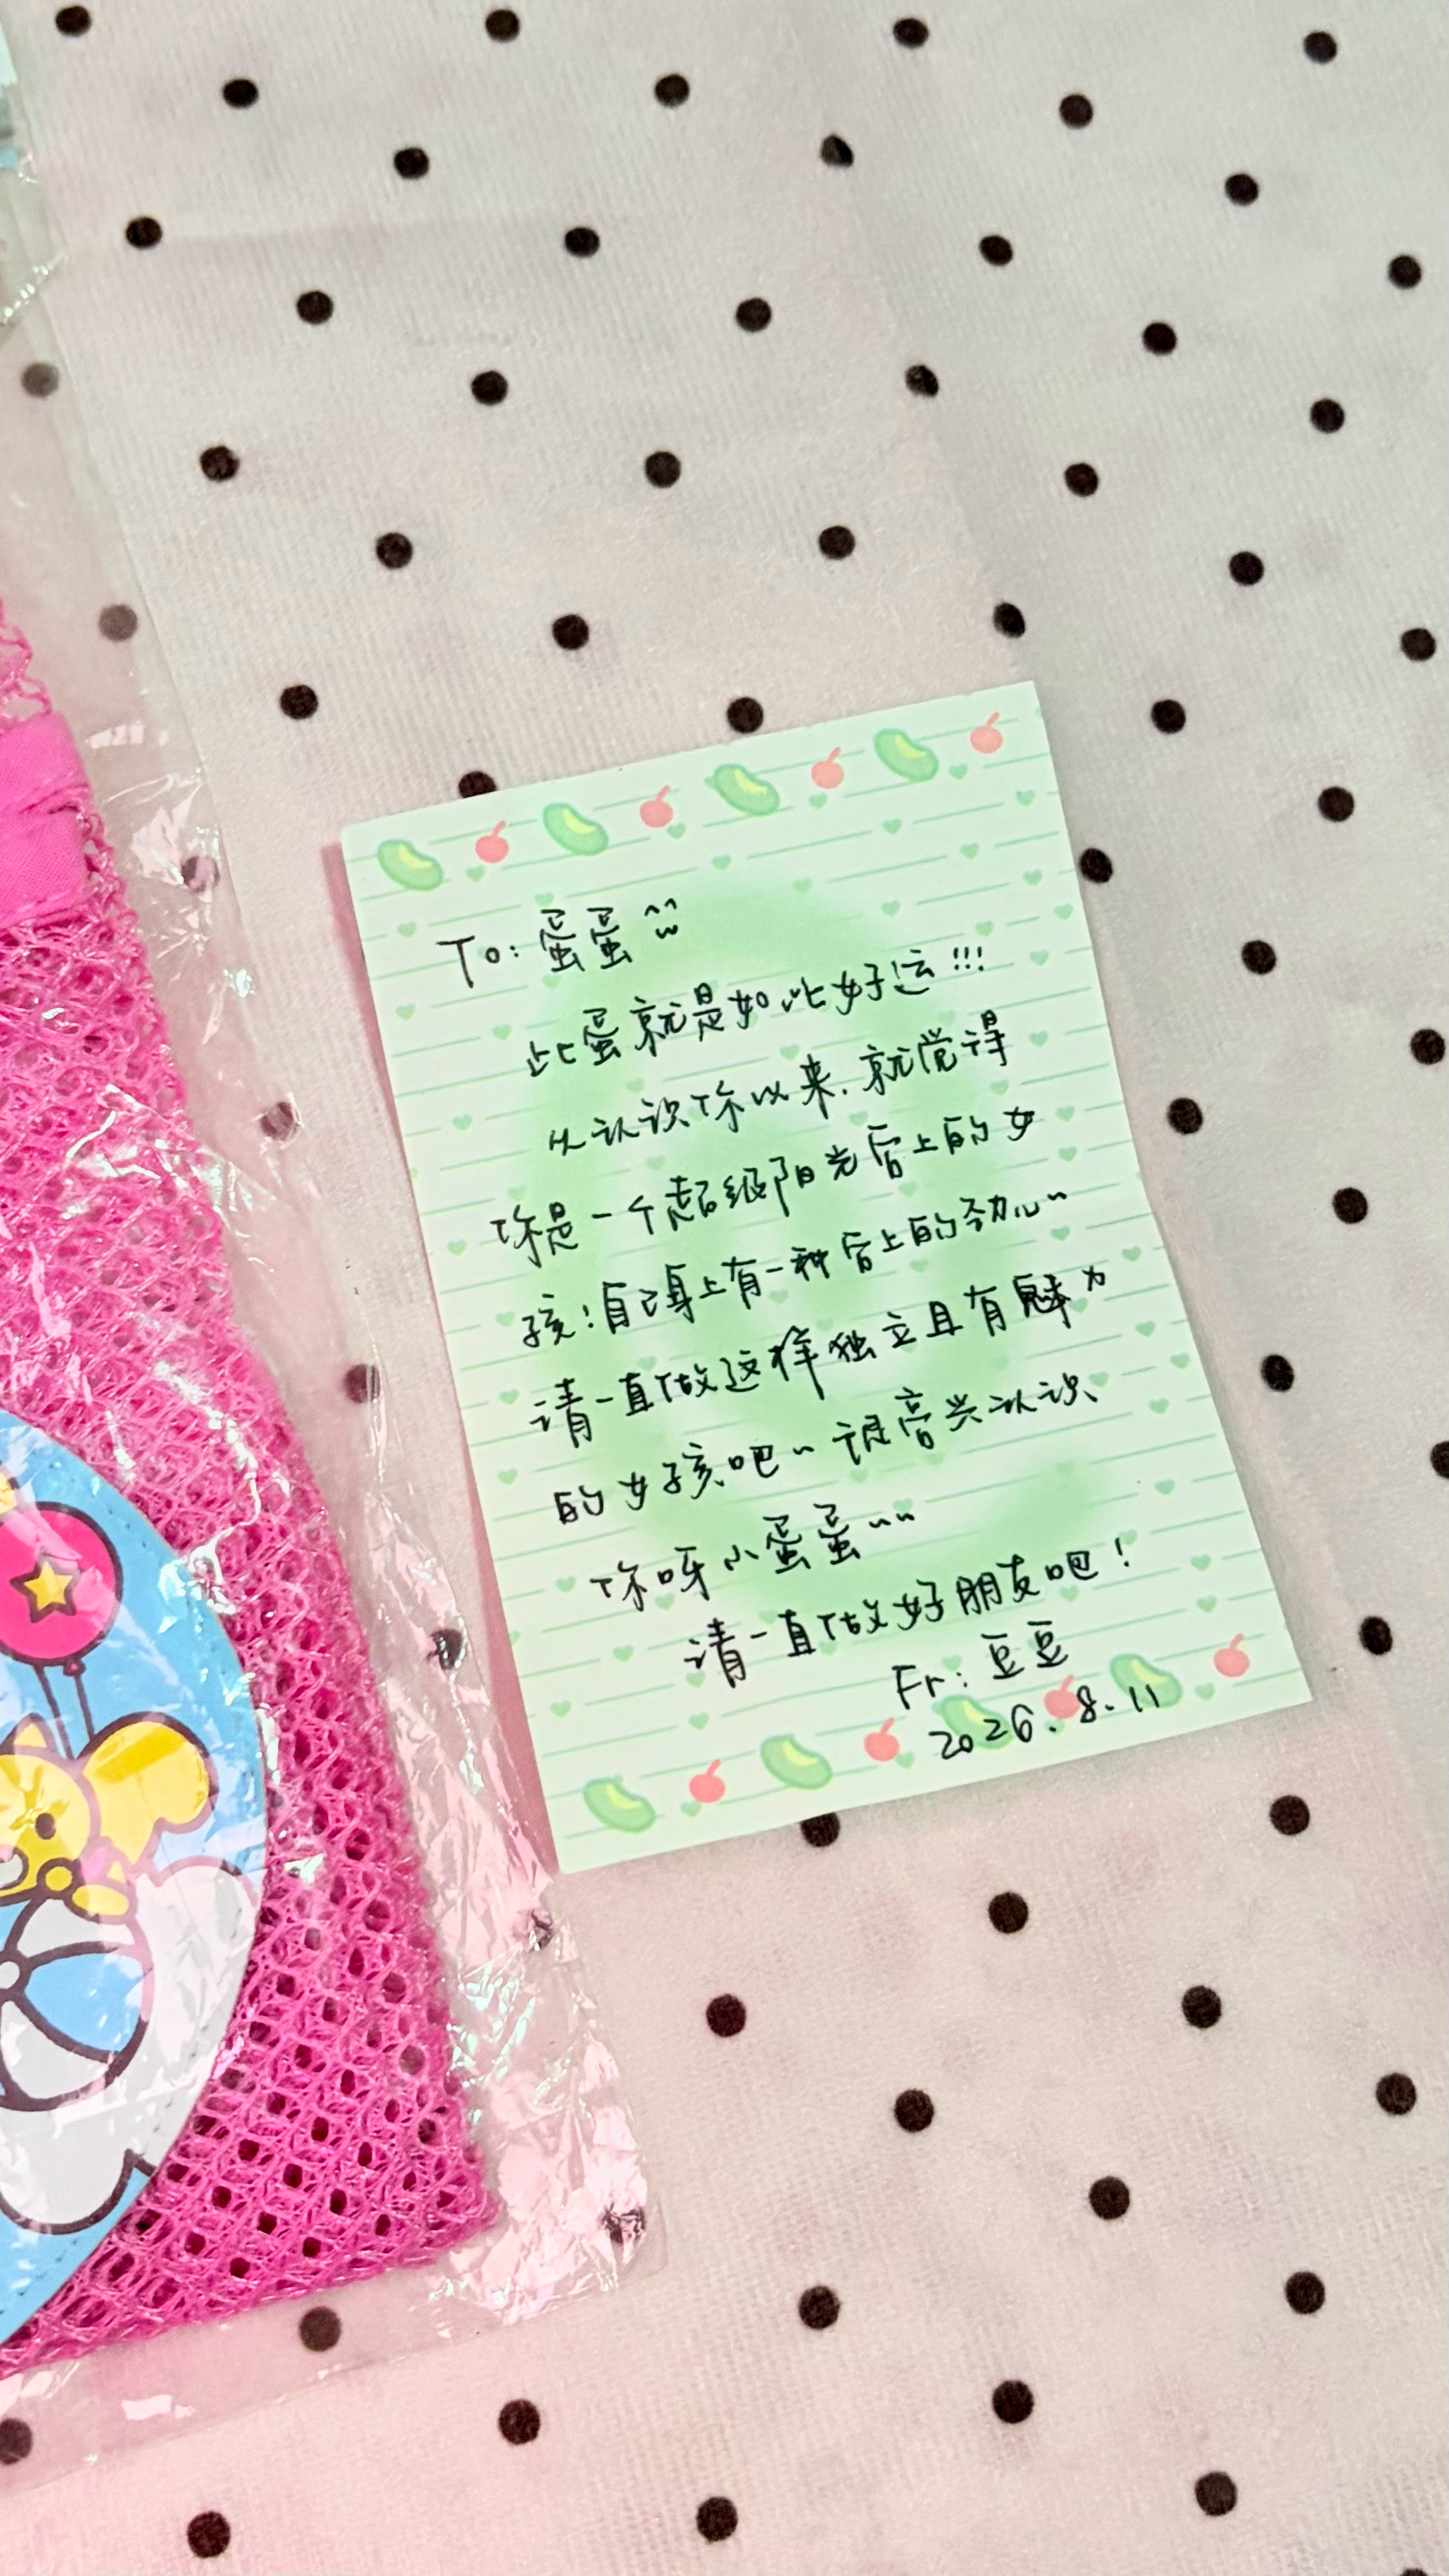 To: 蛋蛋 ^^
此蛋就是如此好运!!!
从认识你以来，就觉得
你是一个超级阳光向上的女
孩！自己身上有一种向上的劲儿~
请一直做这样独立且有魅力
的女孩吧~ 很高兴认识
你呀小蛋蛋~~
请一直做好朋友吧！
Fr: 豆豆
2026.8.11